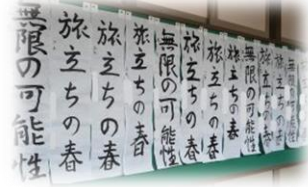 無限の可能性
旅立ちの春
旅立ちの春
旅立ちの春
無限の可能性
旅立ちの春
旅立ちの春
無限の可能性
旅立ちの春